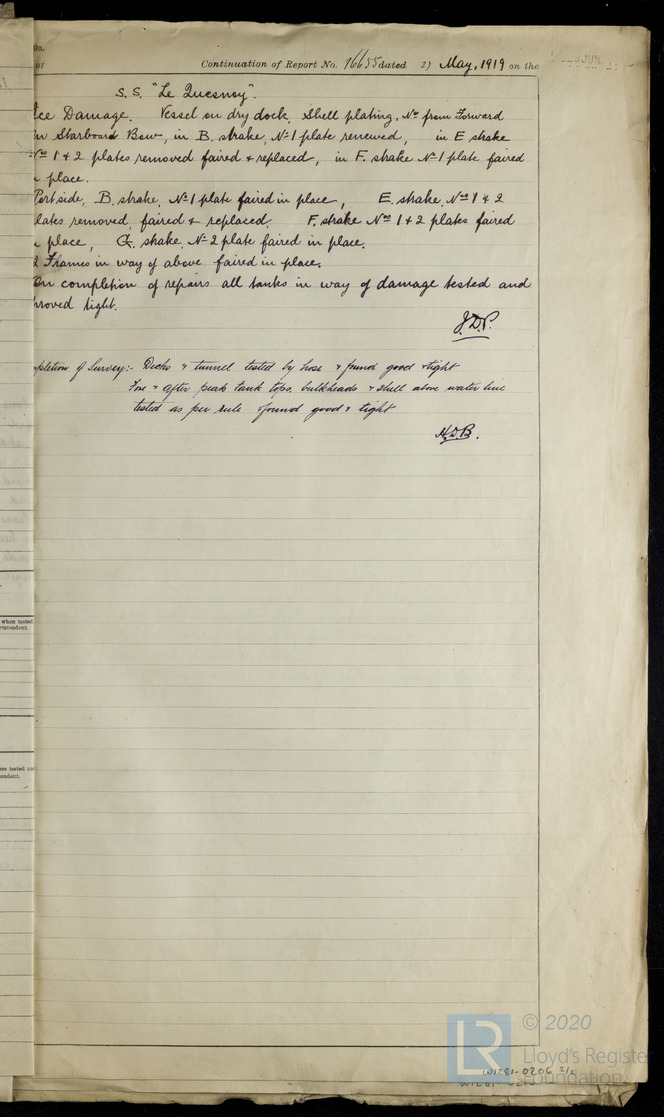 Continuation of Report No. 16655 dated 27 May, 1919 on the
S.S. "Le Quesnoy".
Ice Damage. Vessel on dry dock. Shell plating, Nos from Forward
on Starboard Bow, in B. strake, No 1 plate renewed, in E strake
Nos 1 & 2 plates removed faired & replaced, in F. strake No 1 plate faired
place.
Port side, B. strake, No 1 plate faired in place, E. strake, Nos 1 & 2
plates removed, faired & replaced. F. strake Nos 1 & 2 plates faired
place, G. strake, No 2 plate faired in place.
2 Frames in way of above faired in place.
On completion of repairs all tanks in way of damage tested and
proved tight.
J.D.P.
pletion of Survey:- Decks & tunnel tested by hose & found good & tight
Fore & after peak tank tops, bulkheads & shell above water line
tested as per rule & found good & tight
H.D.B.
when tested
rintendent.
ere tested
endent.
© 2020
LR
Lloyd's Register
Foundation
W1281-0206 2/2